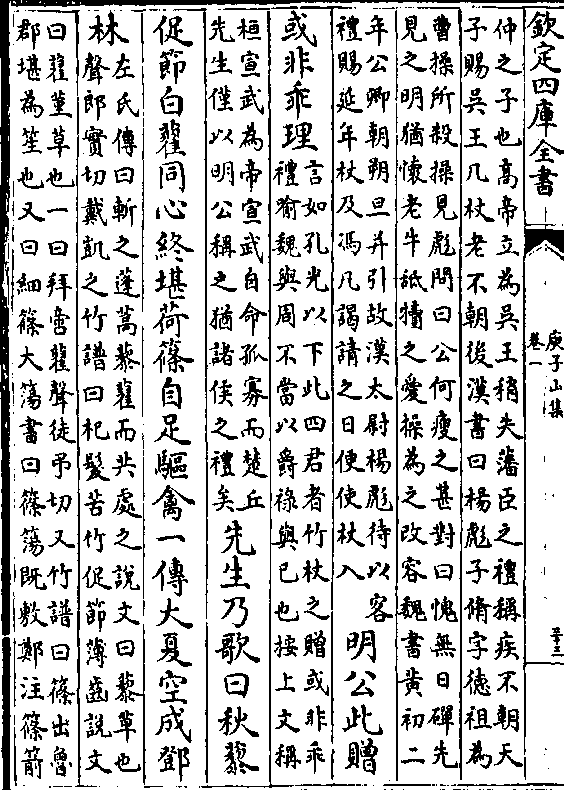 欽定四庫全書
庾子山集
卷一
仲之子也高帝立為吳王稍失藩臣之禮稱疾不朝天
子賜吳王几杖老不朝後漢書曰楊彪子脩字徳祖為
曹操所殺操見彪問曰公何瘦之甚對曰愧無日磾先
見之明猶懷老牛舐犢之愛操為之改容魏書黄初二
年公卿朝朔旦并引故漢太尉楊彪待以客
禮賜延年杖及馮几謁請之日便使杖入
明公此贈
或非乖理
言如孔光以下此四君者竹杖之贈或非乖
禮喻魏與周不當以爵祿與已也按上文稱
桓宣武為帝宣武自命孤寡而楚丘
先生僅以明公稱之猶諸侯之禮矣
先生乃歌曰秋藜
促節白藋同心終堪荷篠自足驅禽一傳大夏空成鄧
林
左氏傳曰斬之蓬蒿藜藋而共處之說文曰藜草也
聲郎實切戴凱之竹譜曰杞髮苦竹促節薄齒說文
曰藋堇草也一曰拜啇藋聲徒弔切又竹譜曰篠出魯
郡堪為笙也又曰細篠大簜書曰篠簜既敷鄭注篠箭